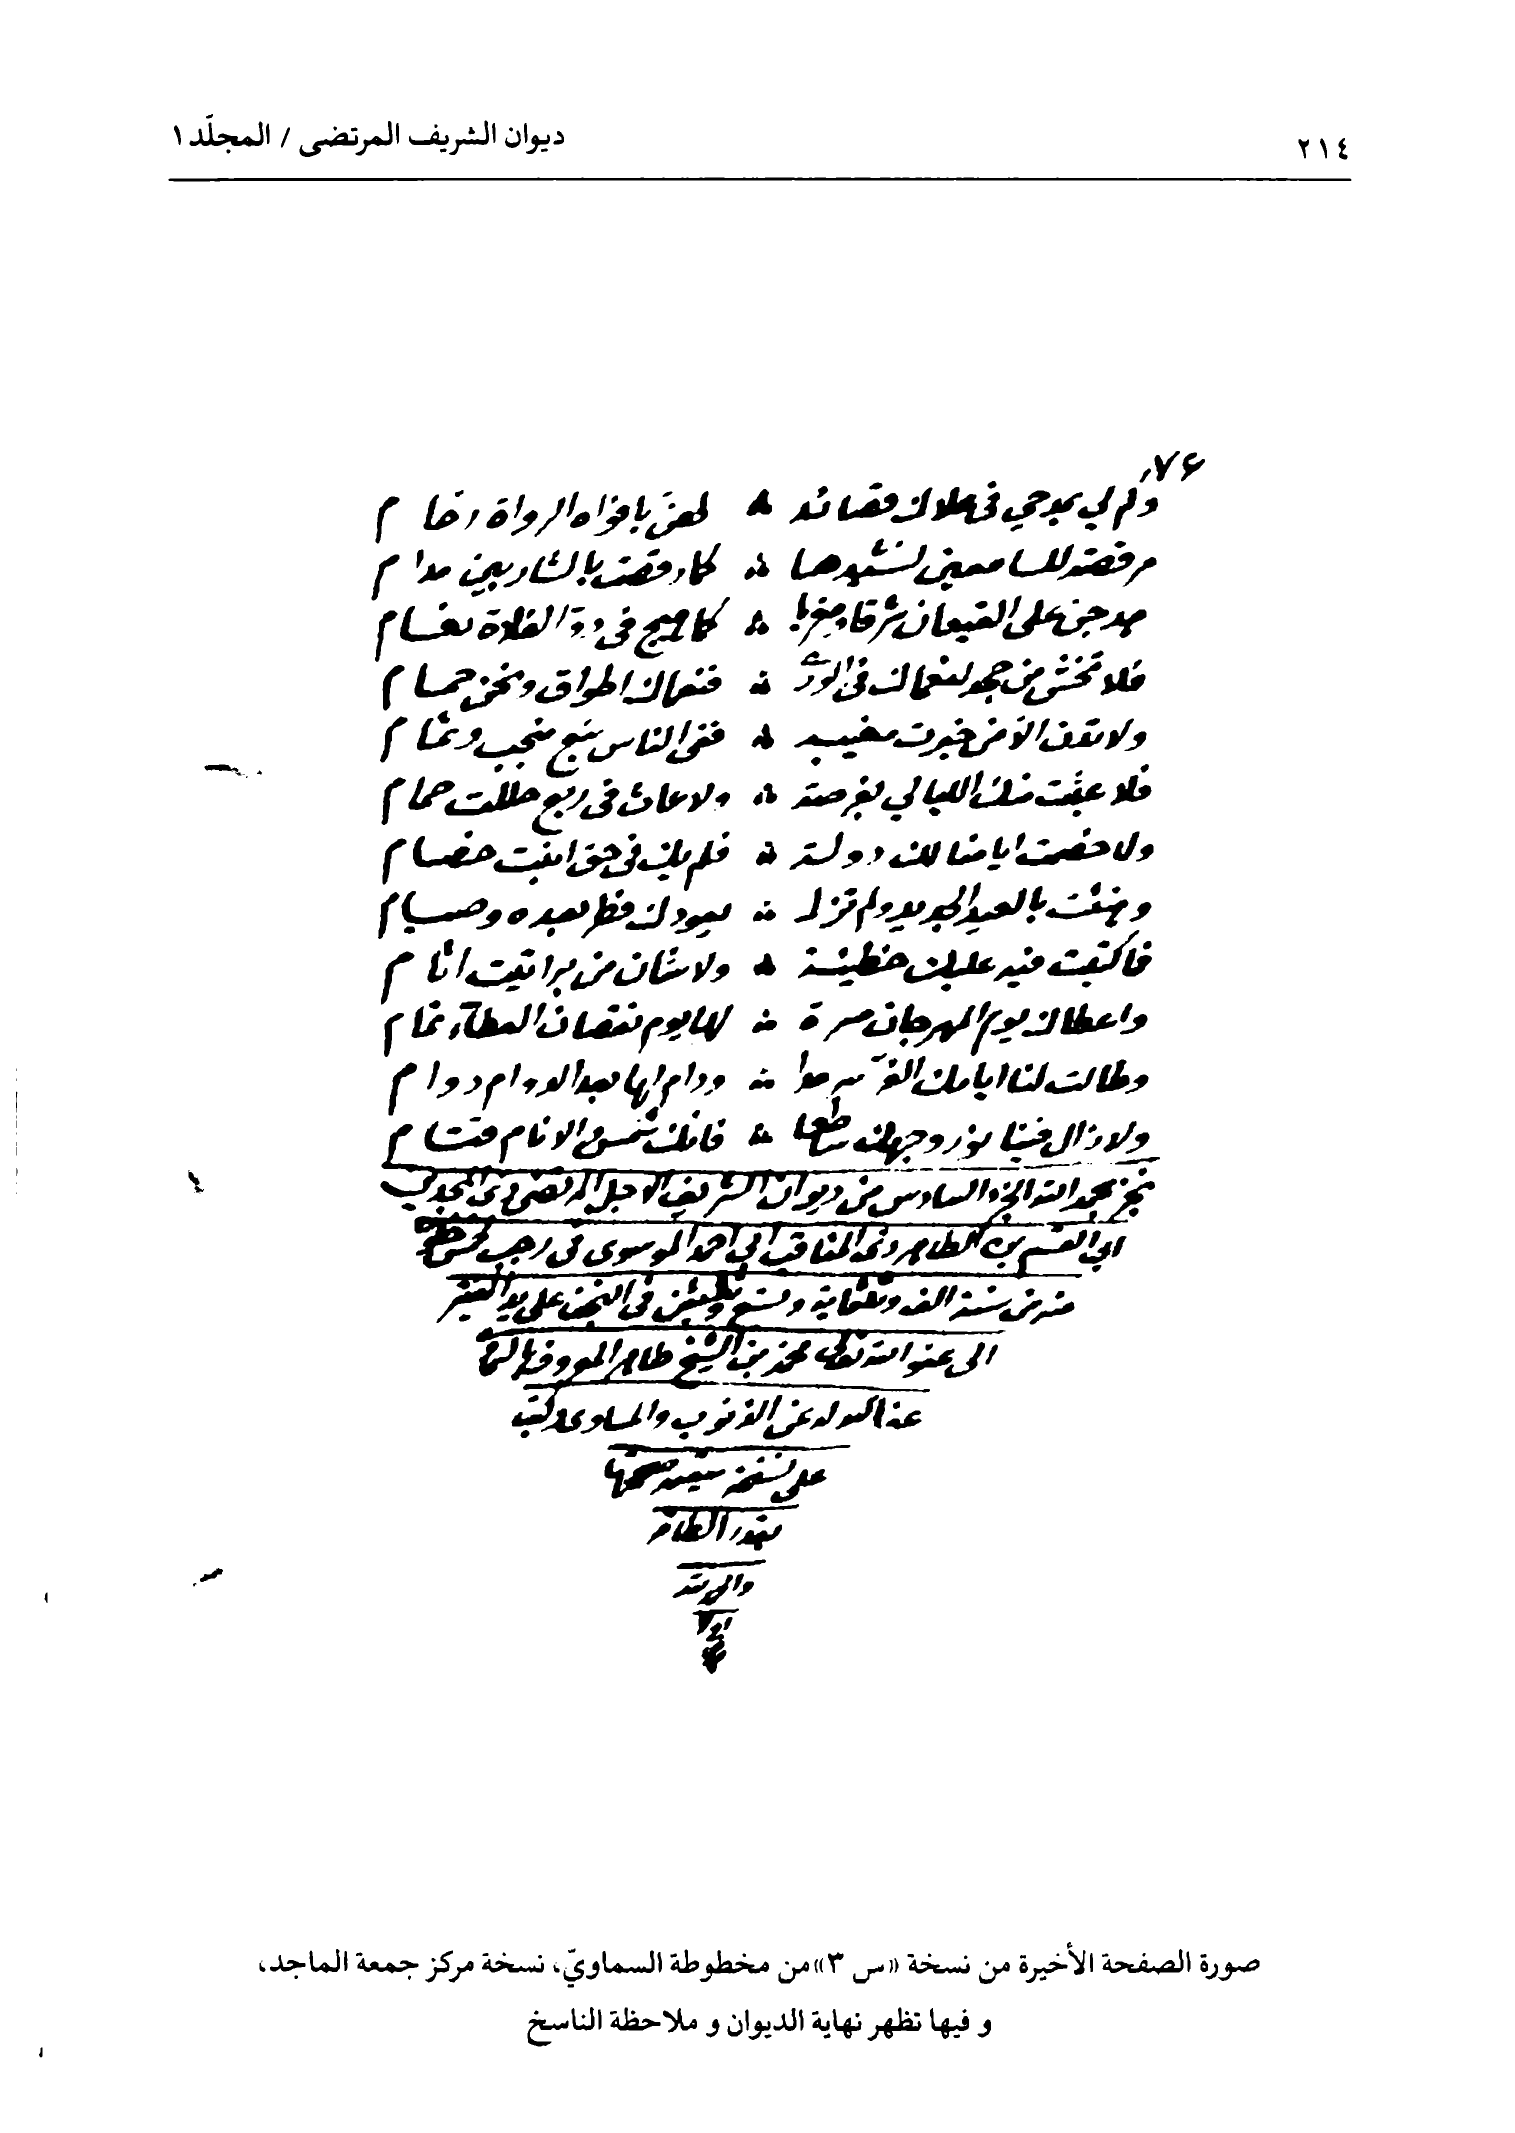 ٢١٤
ديوان الشريف المرتضى / المجلّد ١
٧٦
وكم لي بمدحي في علاك قصائد ∴ لهن بافواه الرواة زخام
مرقصة للسامعين نشيدها ∴ كما رقصت بالشاربين مدام
على القيعان شرقا ومغربا ∴ كما هيج في دو الفلاة نعام
فلا تخش من جحد لنعماك في الورى ∴ فنعماك اطواق ونحن حمام
ولا تقف الا من خبرت مغيبه ∴ ففي الناس نبع منجب وثمام
فلا عبثت منك الليالي بفرصة ∴ ولا عاث في ربع حللت حمام
ولا خصمت ايامنا لك دولة ∴ فلم يك في حق اتيت خصام
وهنئت بالعيد الجديد ولم تزل ∴ يعودك فطر بعده وصيام
فما كتبت فيه عليك خطيئة ∴ ولا شان من بر اتيت اثام
واعطاك يوم المهرجان مسرة ∴ لها يوم نقصان العطآء تمام
وطالت لنا ايامك الغر سرمدا ∴ ودام لها بعد الدوام دوام
ولا زال فينا نور وجهك ساطعا ∴ فانك شمس والانام قتام
نجز بحمد الله الجزء السادس من ديوان الشريف الاجل المرتضى ذي المجدين
ابي القسم بن الطاهر ذي المناقب ابي احمد الموسوي في رجب لخمس خلون
منه من سنة الف وثلثماية وتسع وثلثين في النجف على يد الفقير
الى عفو الله تعالى محمد بن الشيخ طاهر المعروف بالسماوي
عفا الله له عن الذنوب والمساوي وكتب
على نسخة صححتها
بقدر الطاقة
والحمد لله
صورة الصفحة الأخيرة من نسخة «س ٣» من مخطوطة السماويّ، نسخة مركز جمعة الماجد،
و فيها تظهر نهاية الديوان و ملاحظة الناسخ